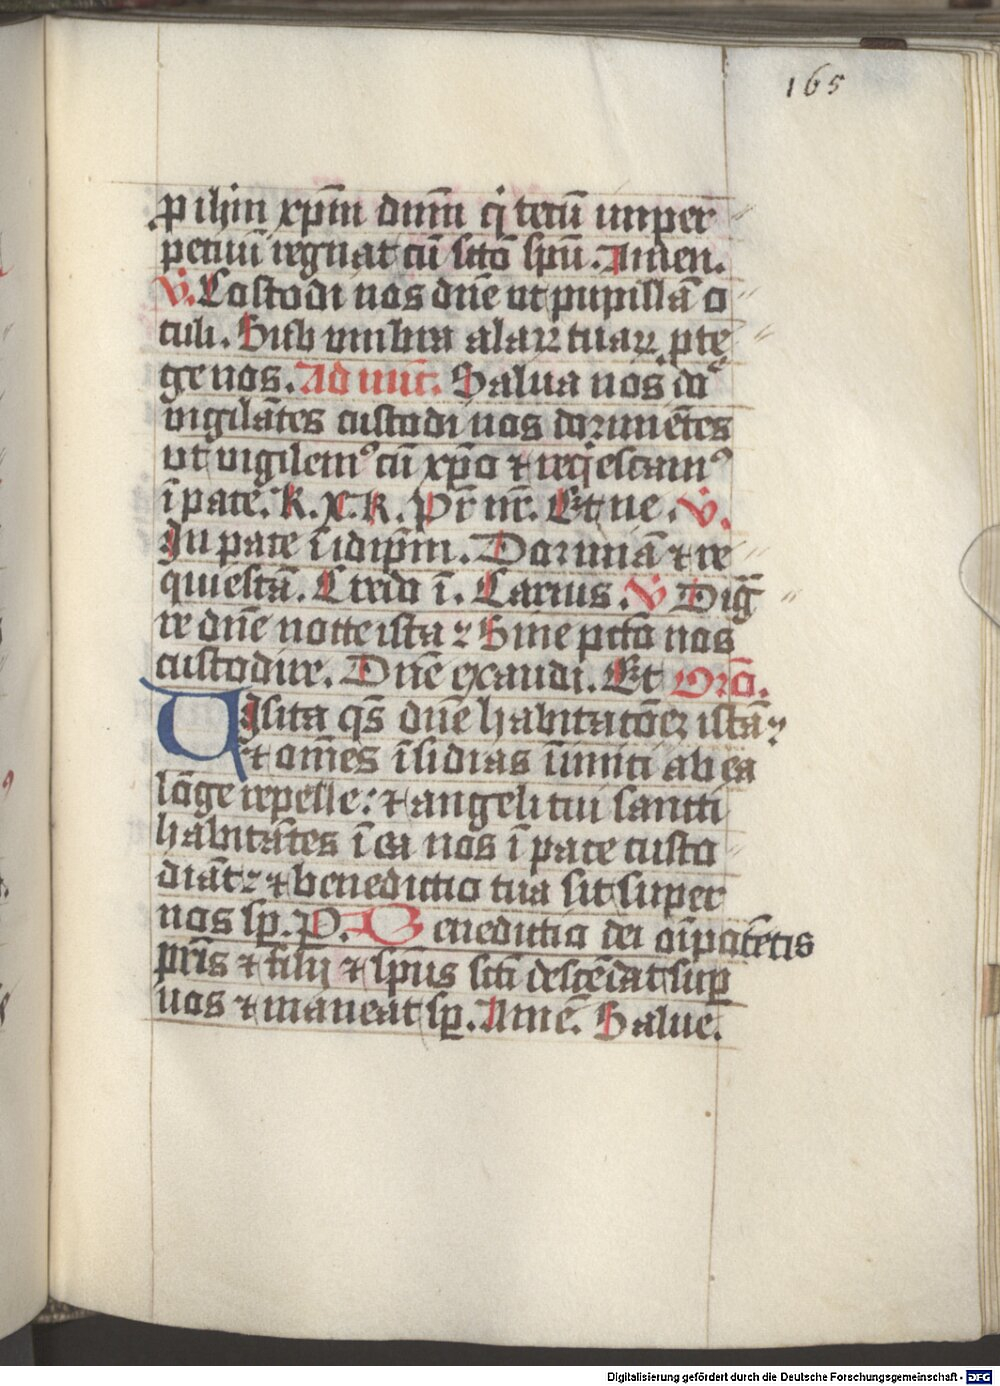 165
p ihm xpm dnm q̇ tecū imper
petuū regnat cū sctō spū. Amen.
V̄. Costodi nos dnē ut pupillā o
culi. Sub umbra alaꝝ tuaꝝ pte
ge nos. Ad nūc. Salua nos dn̄
vigilātes custodi nos dormiētes
ut vigilemꝰ cū xpō ⁊ reqͥescamꝰ
ī pace. k. x. k. Pr̄ nr̄. Et ne. V̄.
In pace ī idipm̄. Dormiā ⁊ re
quiescā. Credo ī. Carnis. V̄ Dig̅
re dnē nocte ista ⁊ Sine pctō nos
custodire. Dnē exaudi. Et Orō.
Uisita qs̄ dnē habitatōeꝫ istā ⁊
⁊ om̄es īsidias īimici ab ea
lōge repelle: ⁊ angeli tui sancti
habitātes ī ea nos ī pace custo
diāt ⁊ ⁊ benedictio tua sit super
nos sp̱. P. Benedictio dei oīpotētis
pr̄is ⁊ filij ⁊ sp̄us sct̄i descēdat sup̱
nos ⁊ maneat sp̱. Amē. Salue.
Digitalisierung gefördert durch die Deutsche Forschungsgemeinschaft - DFG